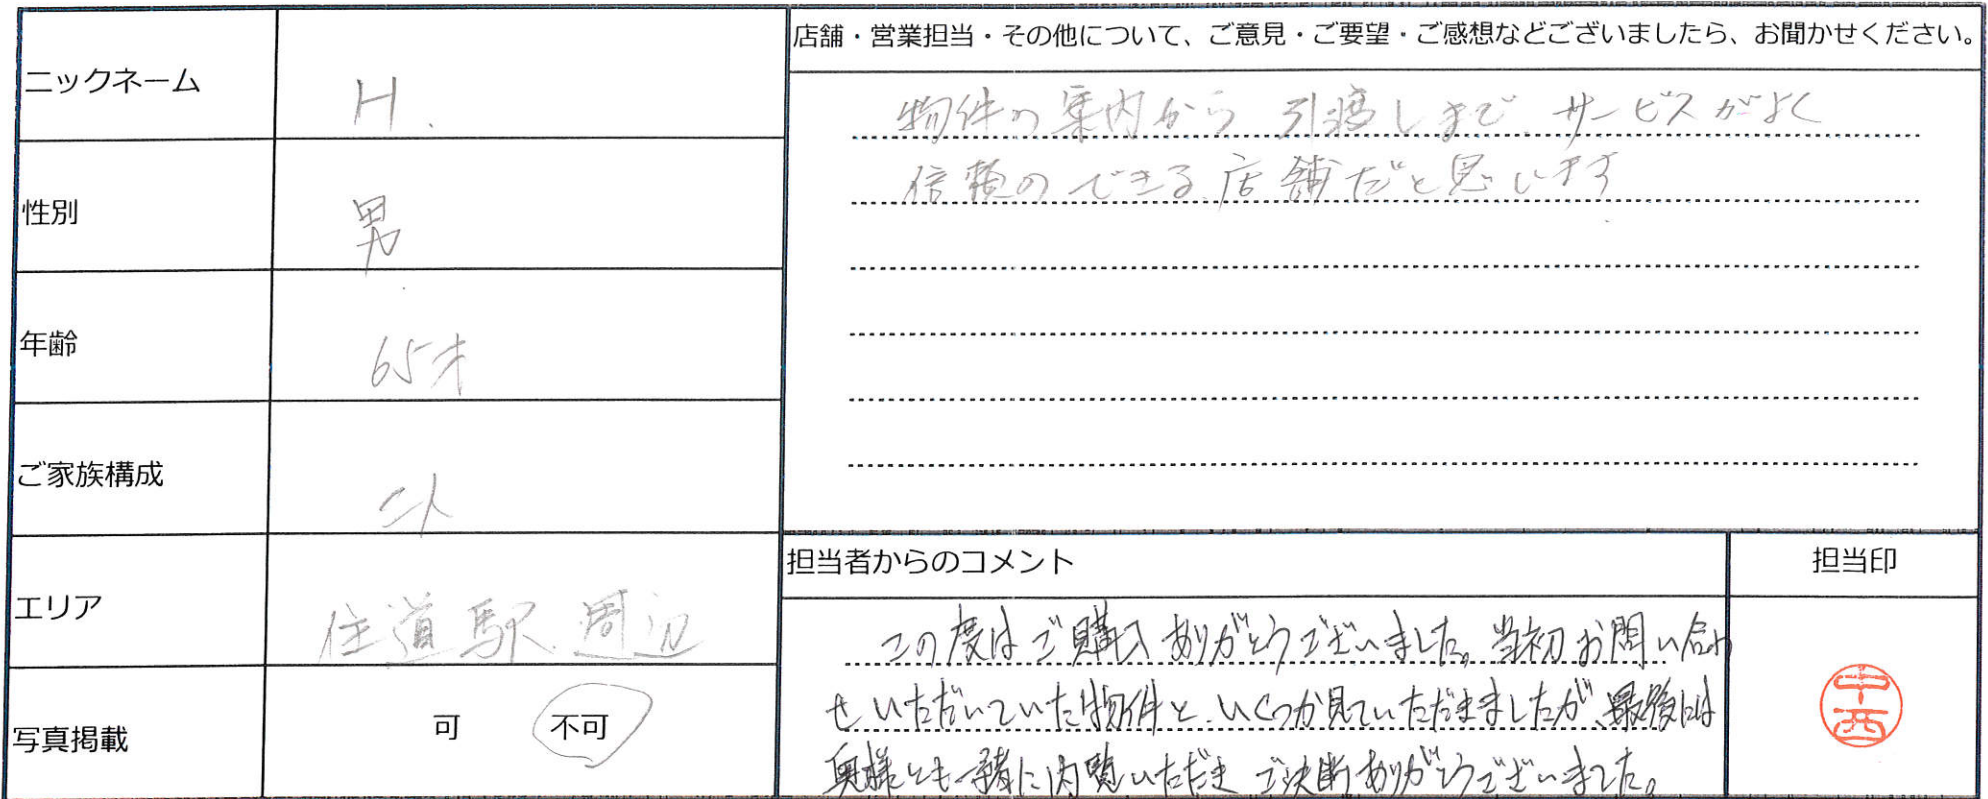 ニックネーム
H.
性別
男
年齢
65才
ご家族構成
二人
エリア
住道駅周辺
写真掲載
可 不可
店舗・営業担当・その他について、ご意見・ご要望・ご感想などございましたら、お聞かせください。
物件の案内から 引渡しまで サービスがよく
信頼のできる店舗だと思います
担当者からのコメント
この度はご購入ありがとうございました。当初お問い合わ
せいただいていた物件と、いくつか見ていただきましたが、最後には
奥様とも一緒に内覧いただき ご決断ありがとうございました。
担当印
中西